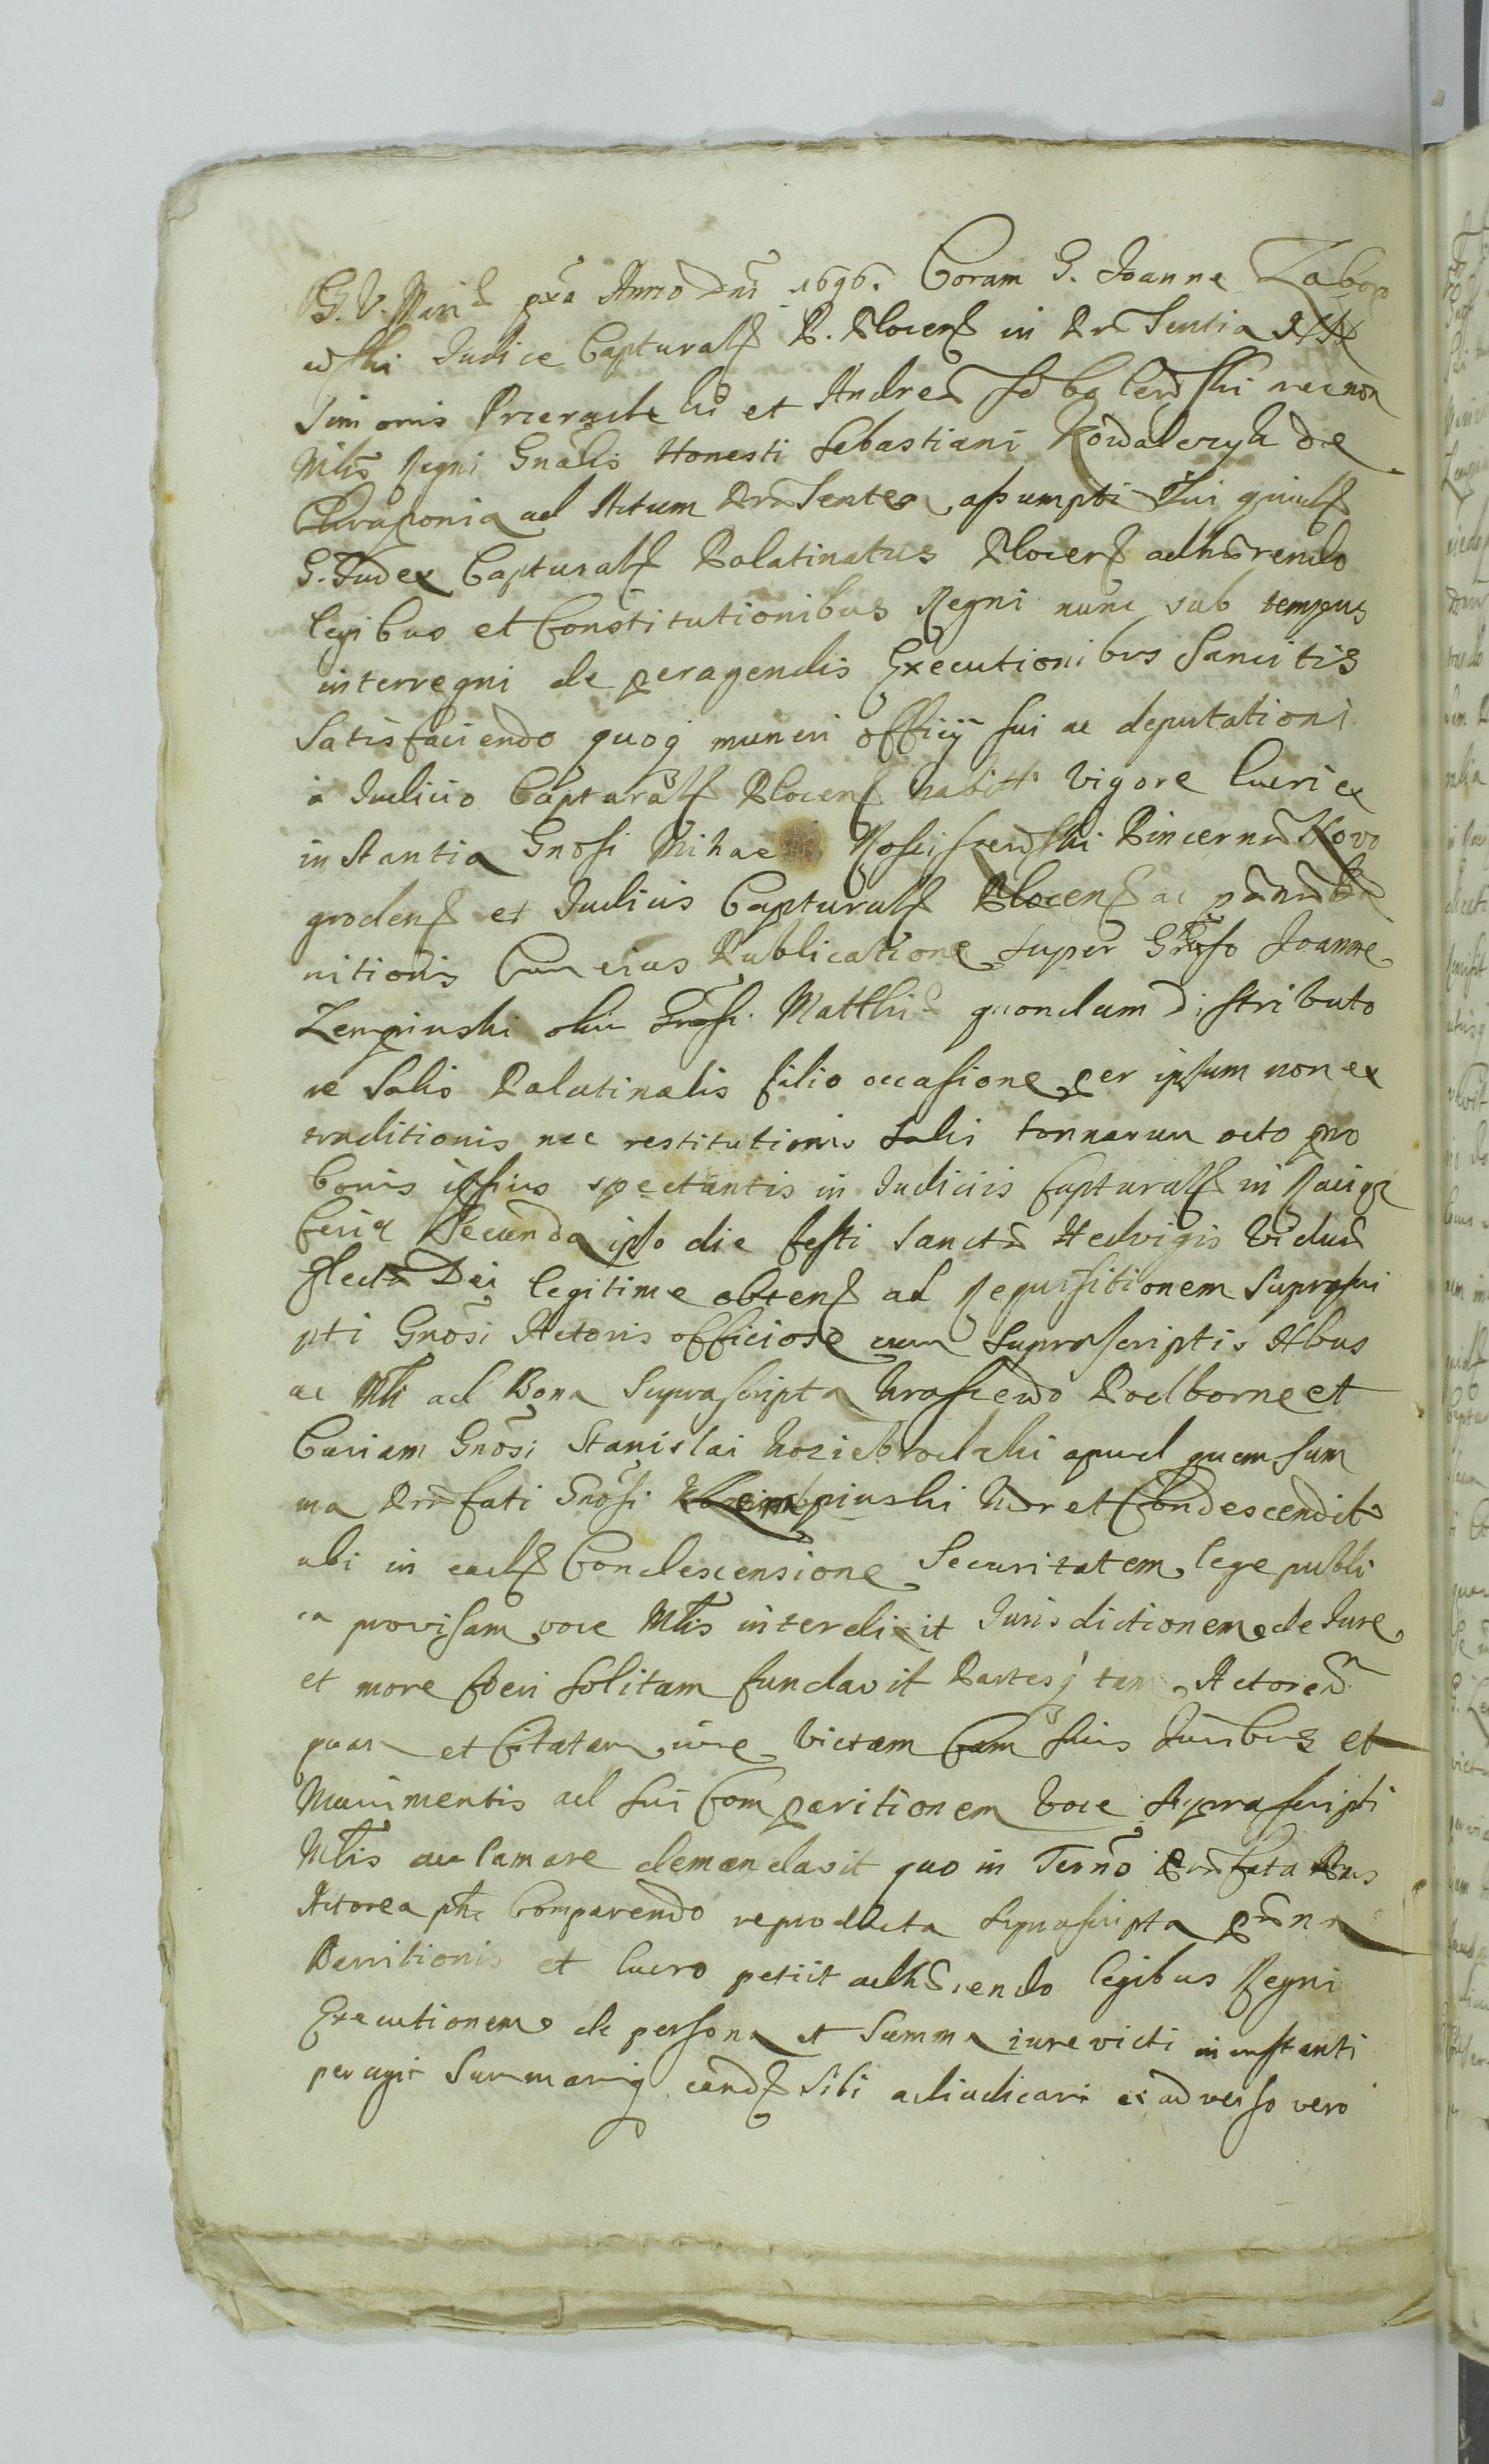 B. V. Mariæ pxa Anno Dni 1696. Coram G. Joanne Zaboro
wski Judice Capturali P. Plocen in Præsentia
Simonis et Andreæ necnon
Mlis Regni Gnalis Honesti Sebastiani Kowalczyk de
ad Actum Præsentem assumpti Qui quidem
G. Judex Capturalis Palatinatus Plocen adhærendo
legibus et Constitutionibus Regni nunc sub tempus
interregni de peragendis Executionibus Sancitis
Satisfaciendo quoq muneri officij sui ac deputationi
a Judicio Capturali Plocen habitæ Vigore lucri ex
instantia Gnosi Michaelis Pincernæ Novo
groden et Judicis Capturalis Plocen ac pænæ ba
nitionis Cum eius Publicatione Super Gnoso Joanne
Zempinski olim Gnosi Matthiæ quondam Distributo
re Salis Palatinalis filio occasione per ipsum non ex
traditionis nec restitutionis Salis tonnarum octo pro
bonis ipsius spectantis in Judiciis Captural in Raciąz
feria Secunda ipso die festi Sanctæ Hedvigis Viduæ
Electæ Dei legitime obtent ad Requisitionem Suprascri
pti Gnosi Actoris officiose cum Suprascriptis Nbus
ac Mli ad Bona Suprascripta Podborne et
Curiam Gnosi Stanislai Koziebrodzki apud quem Sum
ma Præfati Gnosi Zempinski hæret Condescendit
ubi in eadem Condescensione Securitatem lege publi
ca provisam voce Mlis interdixit Jurisdictionem de Jure
et more fieri solitam fundavit Partesq tam Actoream
quam et Citatam iure Victam Cum suis Juribus et
Munimentis ad sui Comparitionem Voce Suprascripti
Mlis acclamare demandavit quo in Termino Præfata Pars
Actorea pntr Comparendo reproducta Suprascripta pæna
Bannitionis et lucro petiit adhærendo legibus Regni
Executionem de persona et Summa iure victi in instanti
peragi Summamq eandem Sibi adiudicari ex adverso vero